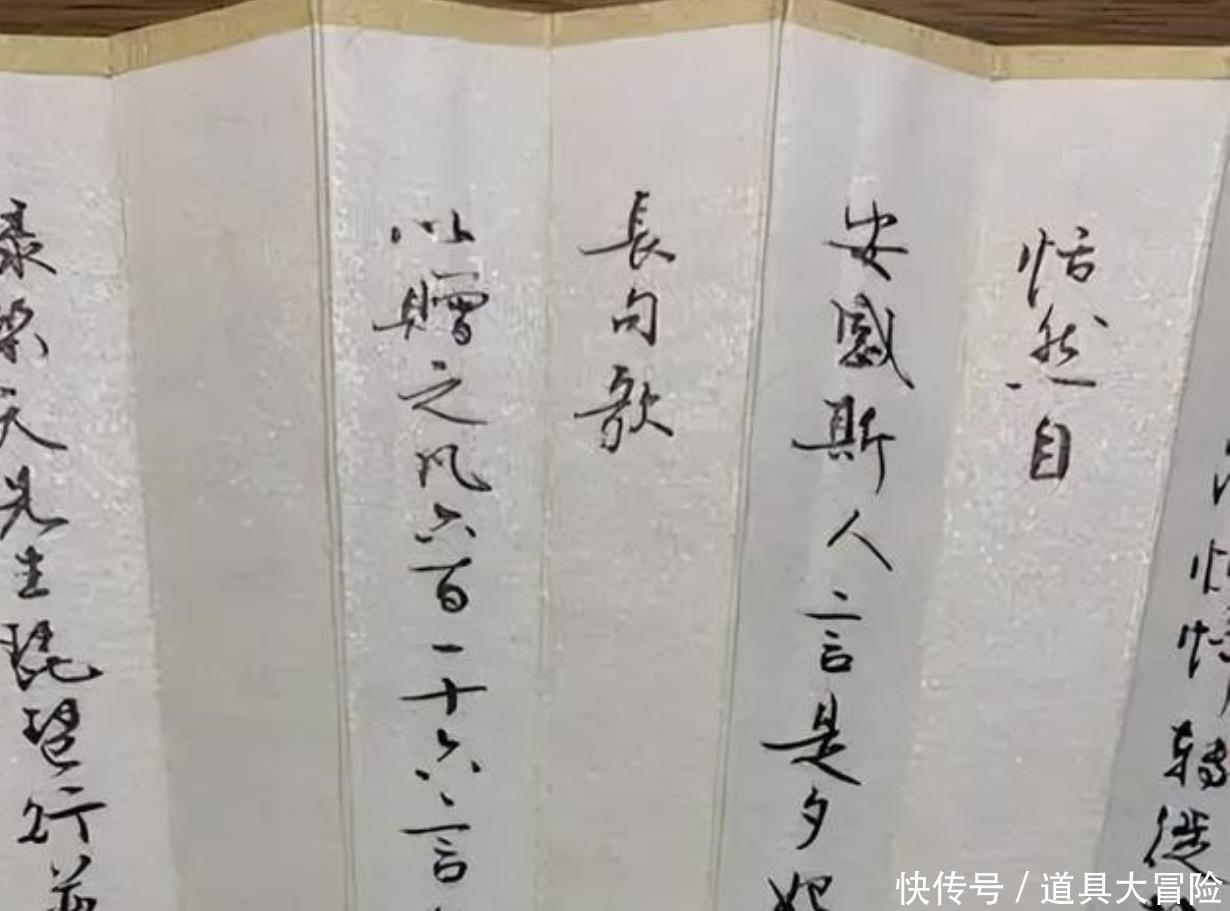 憔悴轉徙
恬然自
安感斯人言是夕始
長句歌
以贈之凡六百一十六言
樂天先生琵琶行
快传号/道具大冒险